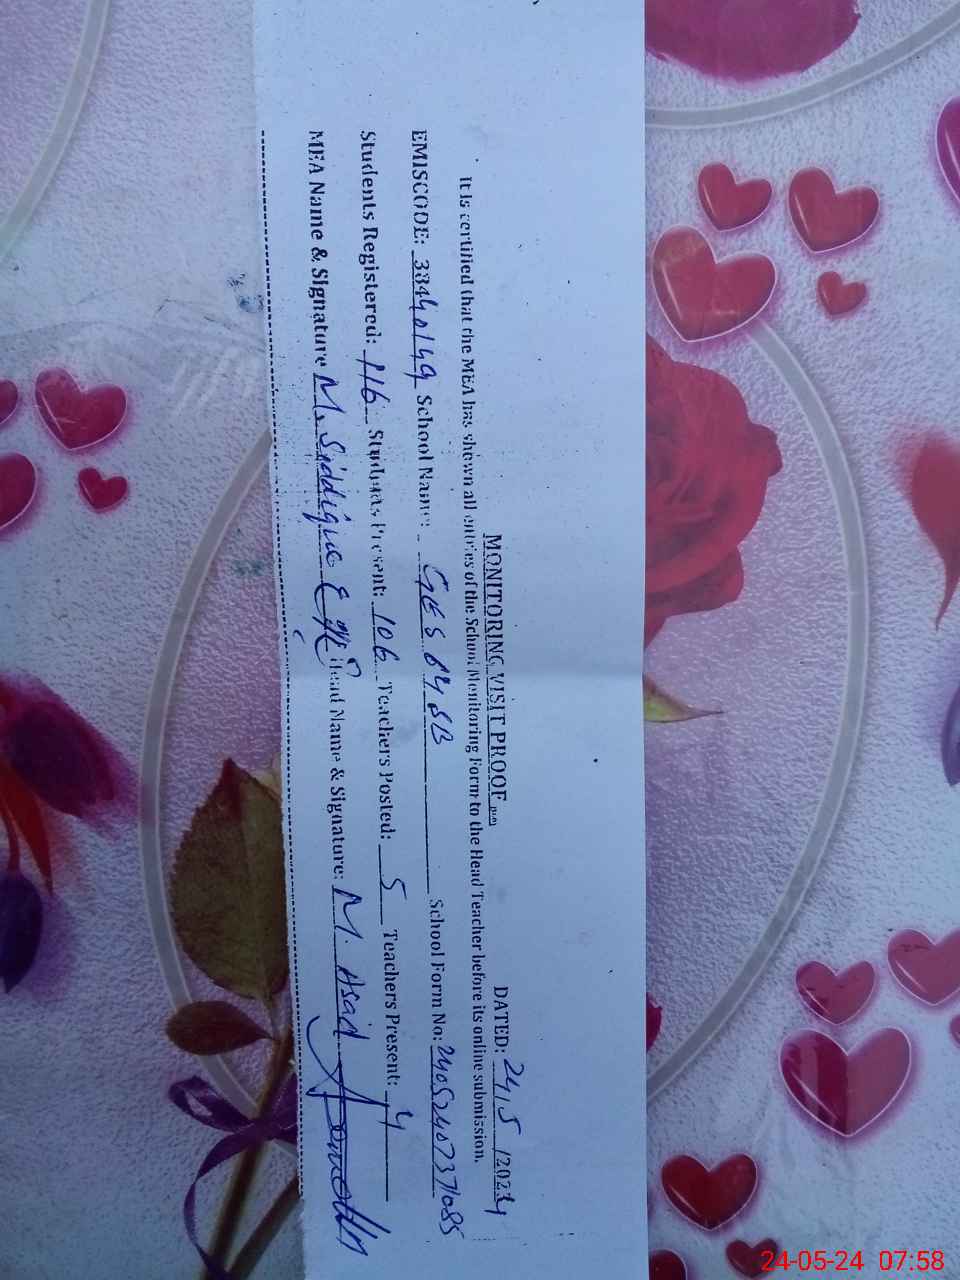 MONITORING VISIT PROOF
DATED: 24/5/2024
It is certified that the MEA has shown all entries of the School Monitoring Form to the Head Teacher before its online submission.
EMISCODE: 38440149 School Name: GES 84 SB School Form No: 2405240737085
Students Registered: 116 Students Present: 106 Teachers Posted: 5 Teachers Present: 4
MEA Name & Signature M. Siddique Head Name & Signature: M. Asad
24-05-24 07:58